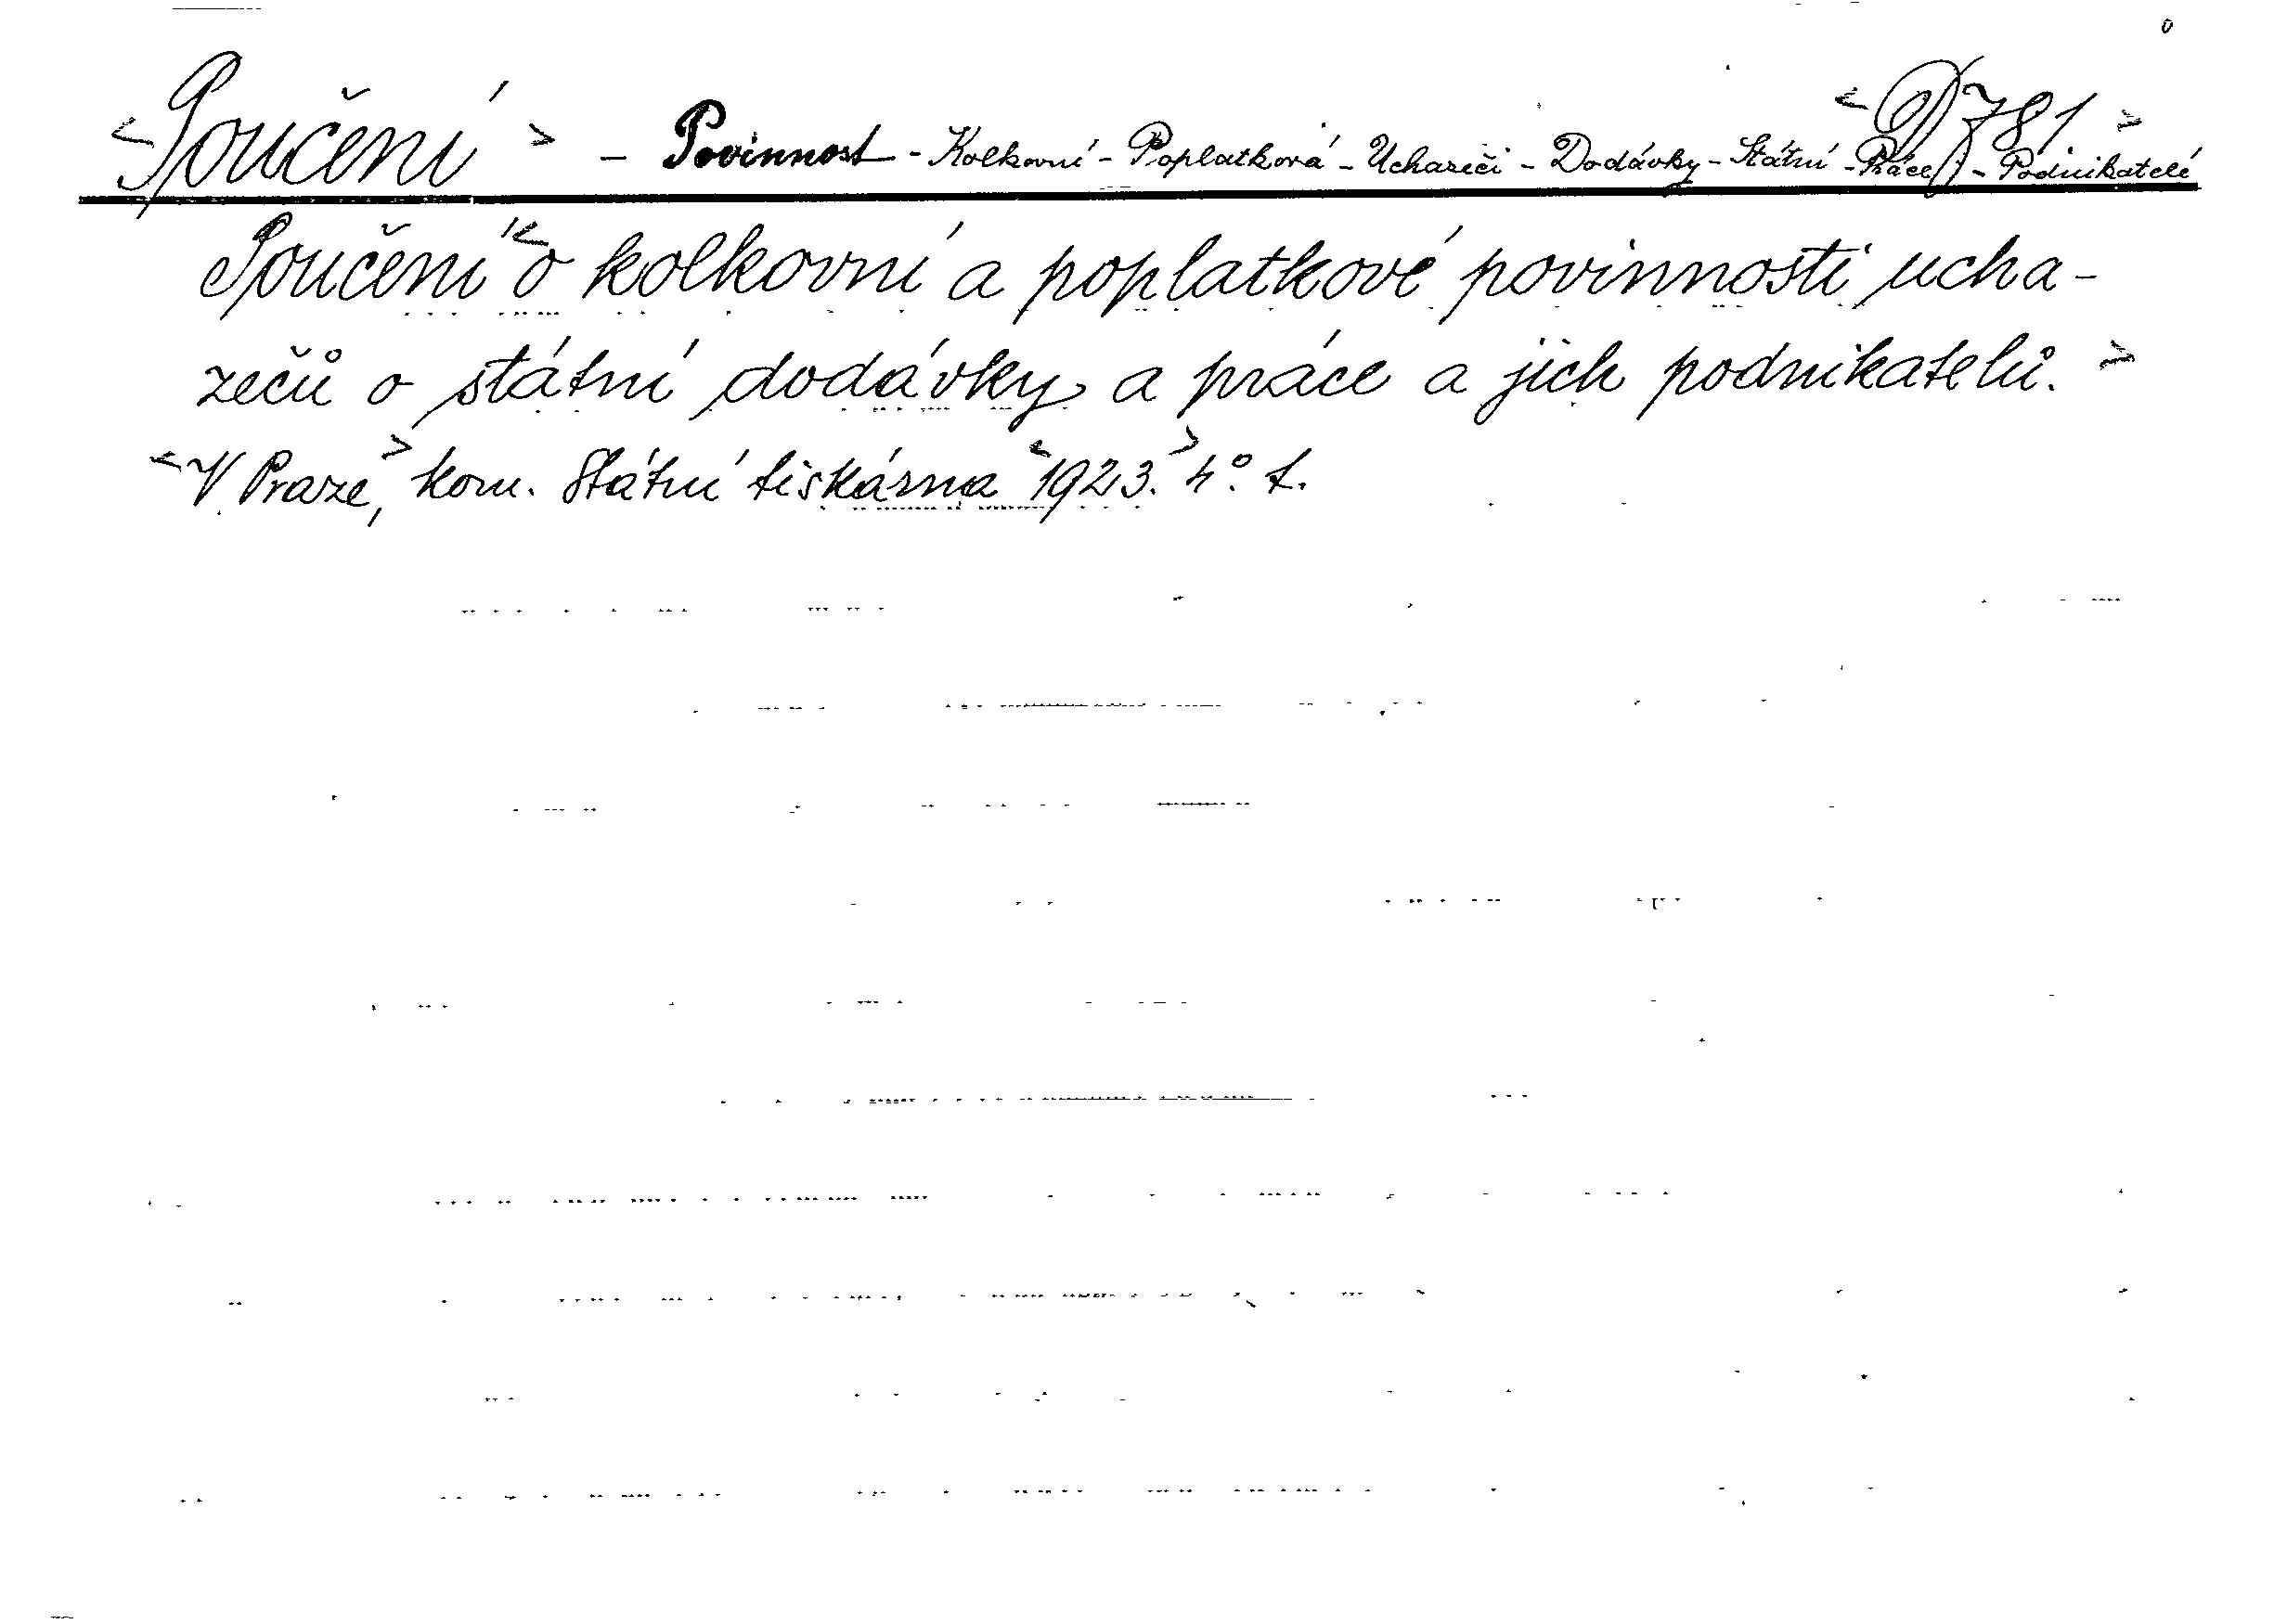 <Poučení> - Povinnost - Kolkovní - Poplatková - Uchazeči - Dodávky - Státní - Práce - Podnikatelé <D 781>
Poučení < o kolkovní a poplatkové povinnosti ucha-
zečů o státní dodávky a práce a jich podnikatelů. >
<V Praze,> kom. Státní tiskárna <1923.> 4°. f.